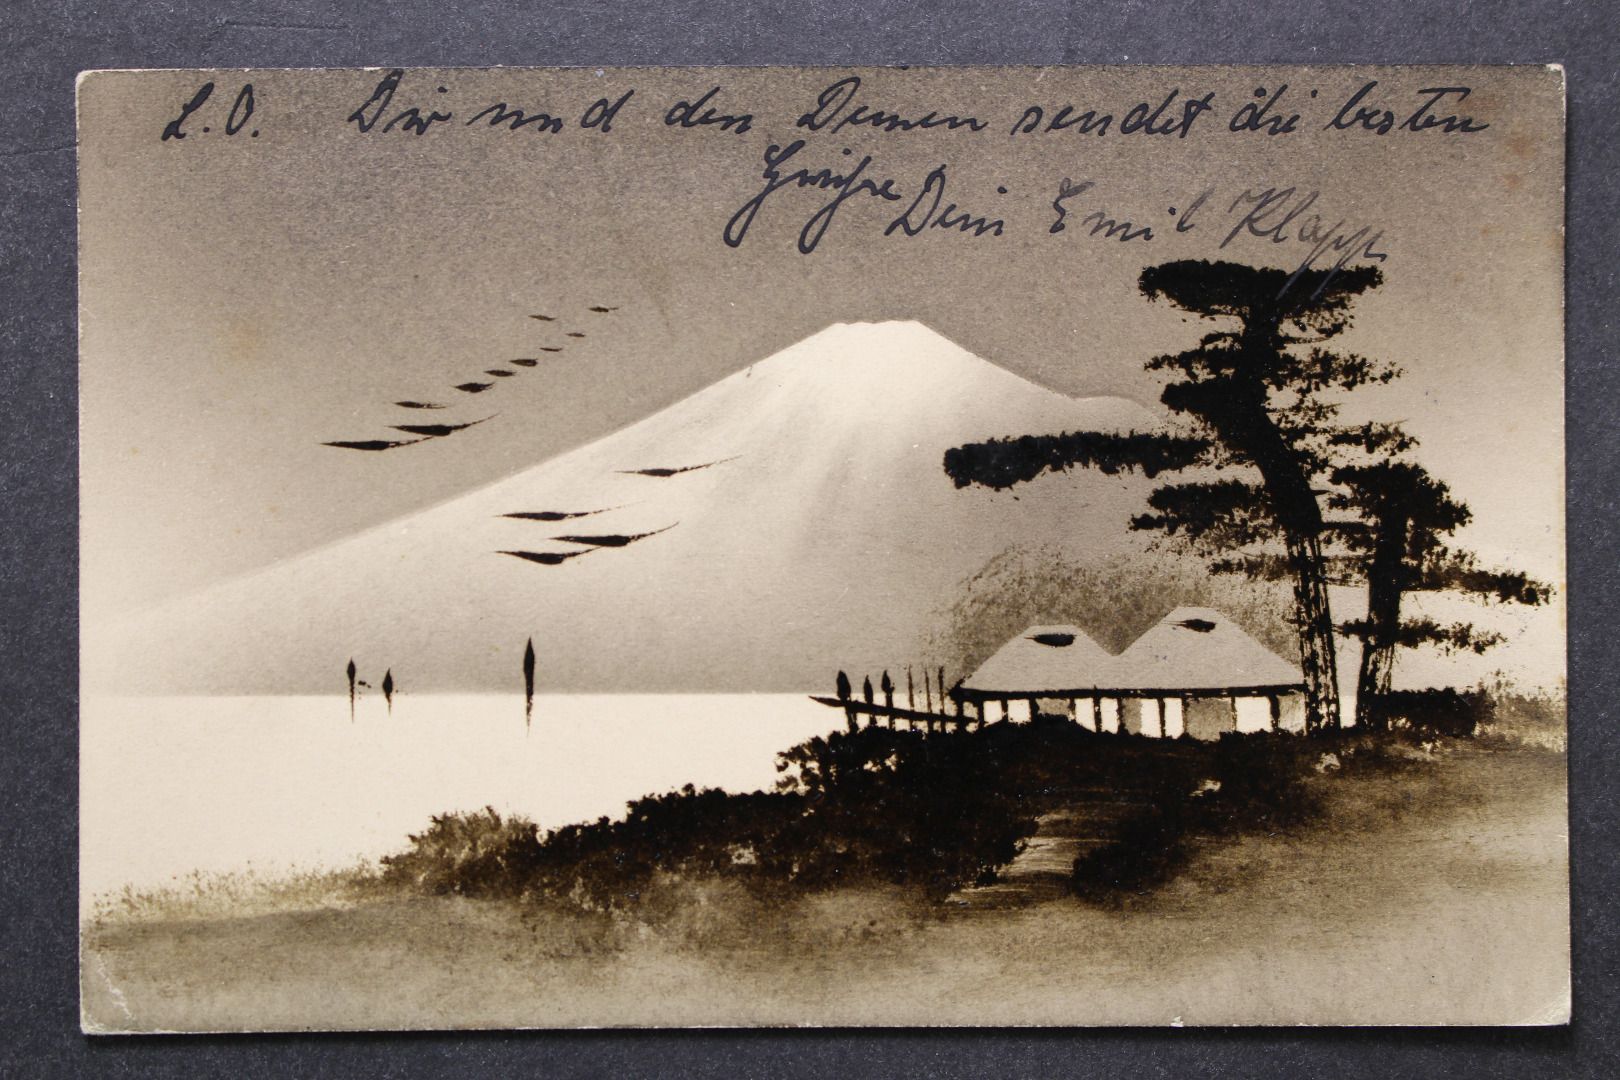 L.O. Dir und den Deinen sendet die besten
Grüsse Dein Emil Klapp